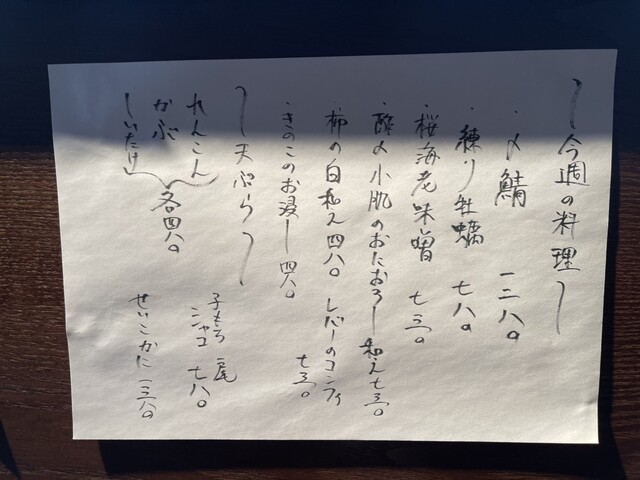 〜今週の料理〜
・〆鯖 一三八〇
・練り牡蠣 七八〇
・桜海老味噌 七三〇
・酢〆小肌のおにおろし和え 七三〇
・柿の白和え 四八〇
レバーのコンフィ 七三〇
・きのこのお浸し 四八〇
〜天ぷら〜
れんこん
かぶ
しいたけ
各四八〇
子もち シャコ 二尾 七八〇
せいこかに 一三八〇